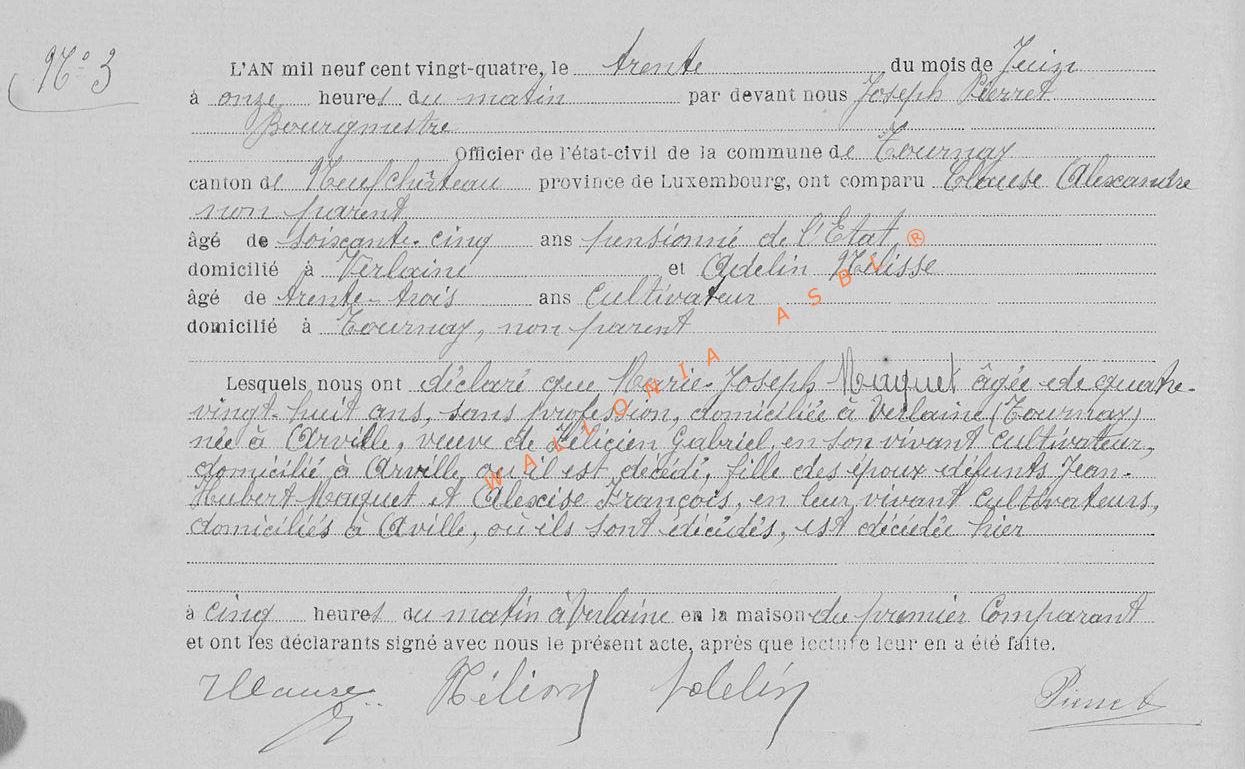 N° 3
L'AN mil neuf cent vingt-quatre, le trente du mois de Juin
à onze heures du matin par devant nous Joseph Pierret
Bourgmestre
Officier de l'état-civil de la commune de Tournay
canton de Neufchâteau province de Luxembourg, ont comparu Clause Alexandre
non parent
âgé de soixante-cinq ans pensionné de l'Etat
domicilié à Verlaine et Adelin
âgé de trente-trois ans Cultivateur
domicilié à Tournay, non parent
Lesquels nous ont déclaré que Marie-Joseph Maquet âgée de quatre-
vingt-huit ans, sans profession, domiciliée à Verlaine (Tournay)
née à Arville, veuve de Félicien Gabriel, en son vivant cultivateur,
domicilié à Arville, où il est décédé, fille des époux défunts Jean-
Hubert Maquet et Alexise François, en leur vivant cultivateurs,
domiciliés à Arville, où ils sont décédés, est décédée hier
à cinq heures du matin à Verlaine en la maison du premier Comparant
et ont les déclarants signé avec nous le présent acte, après que lecture leur en a été faite.
Adelin Pierret
WALLONIA ASBL ®